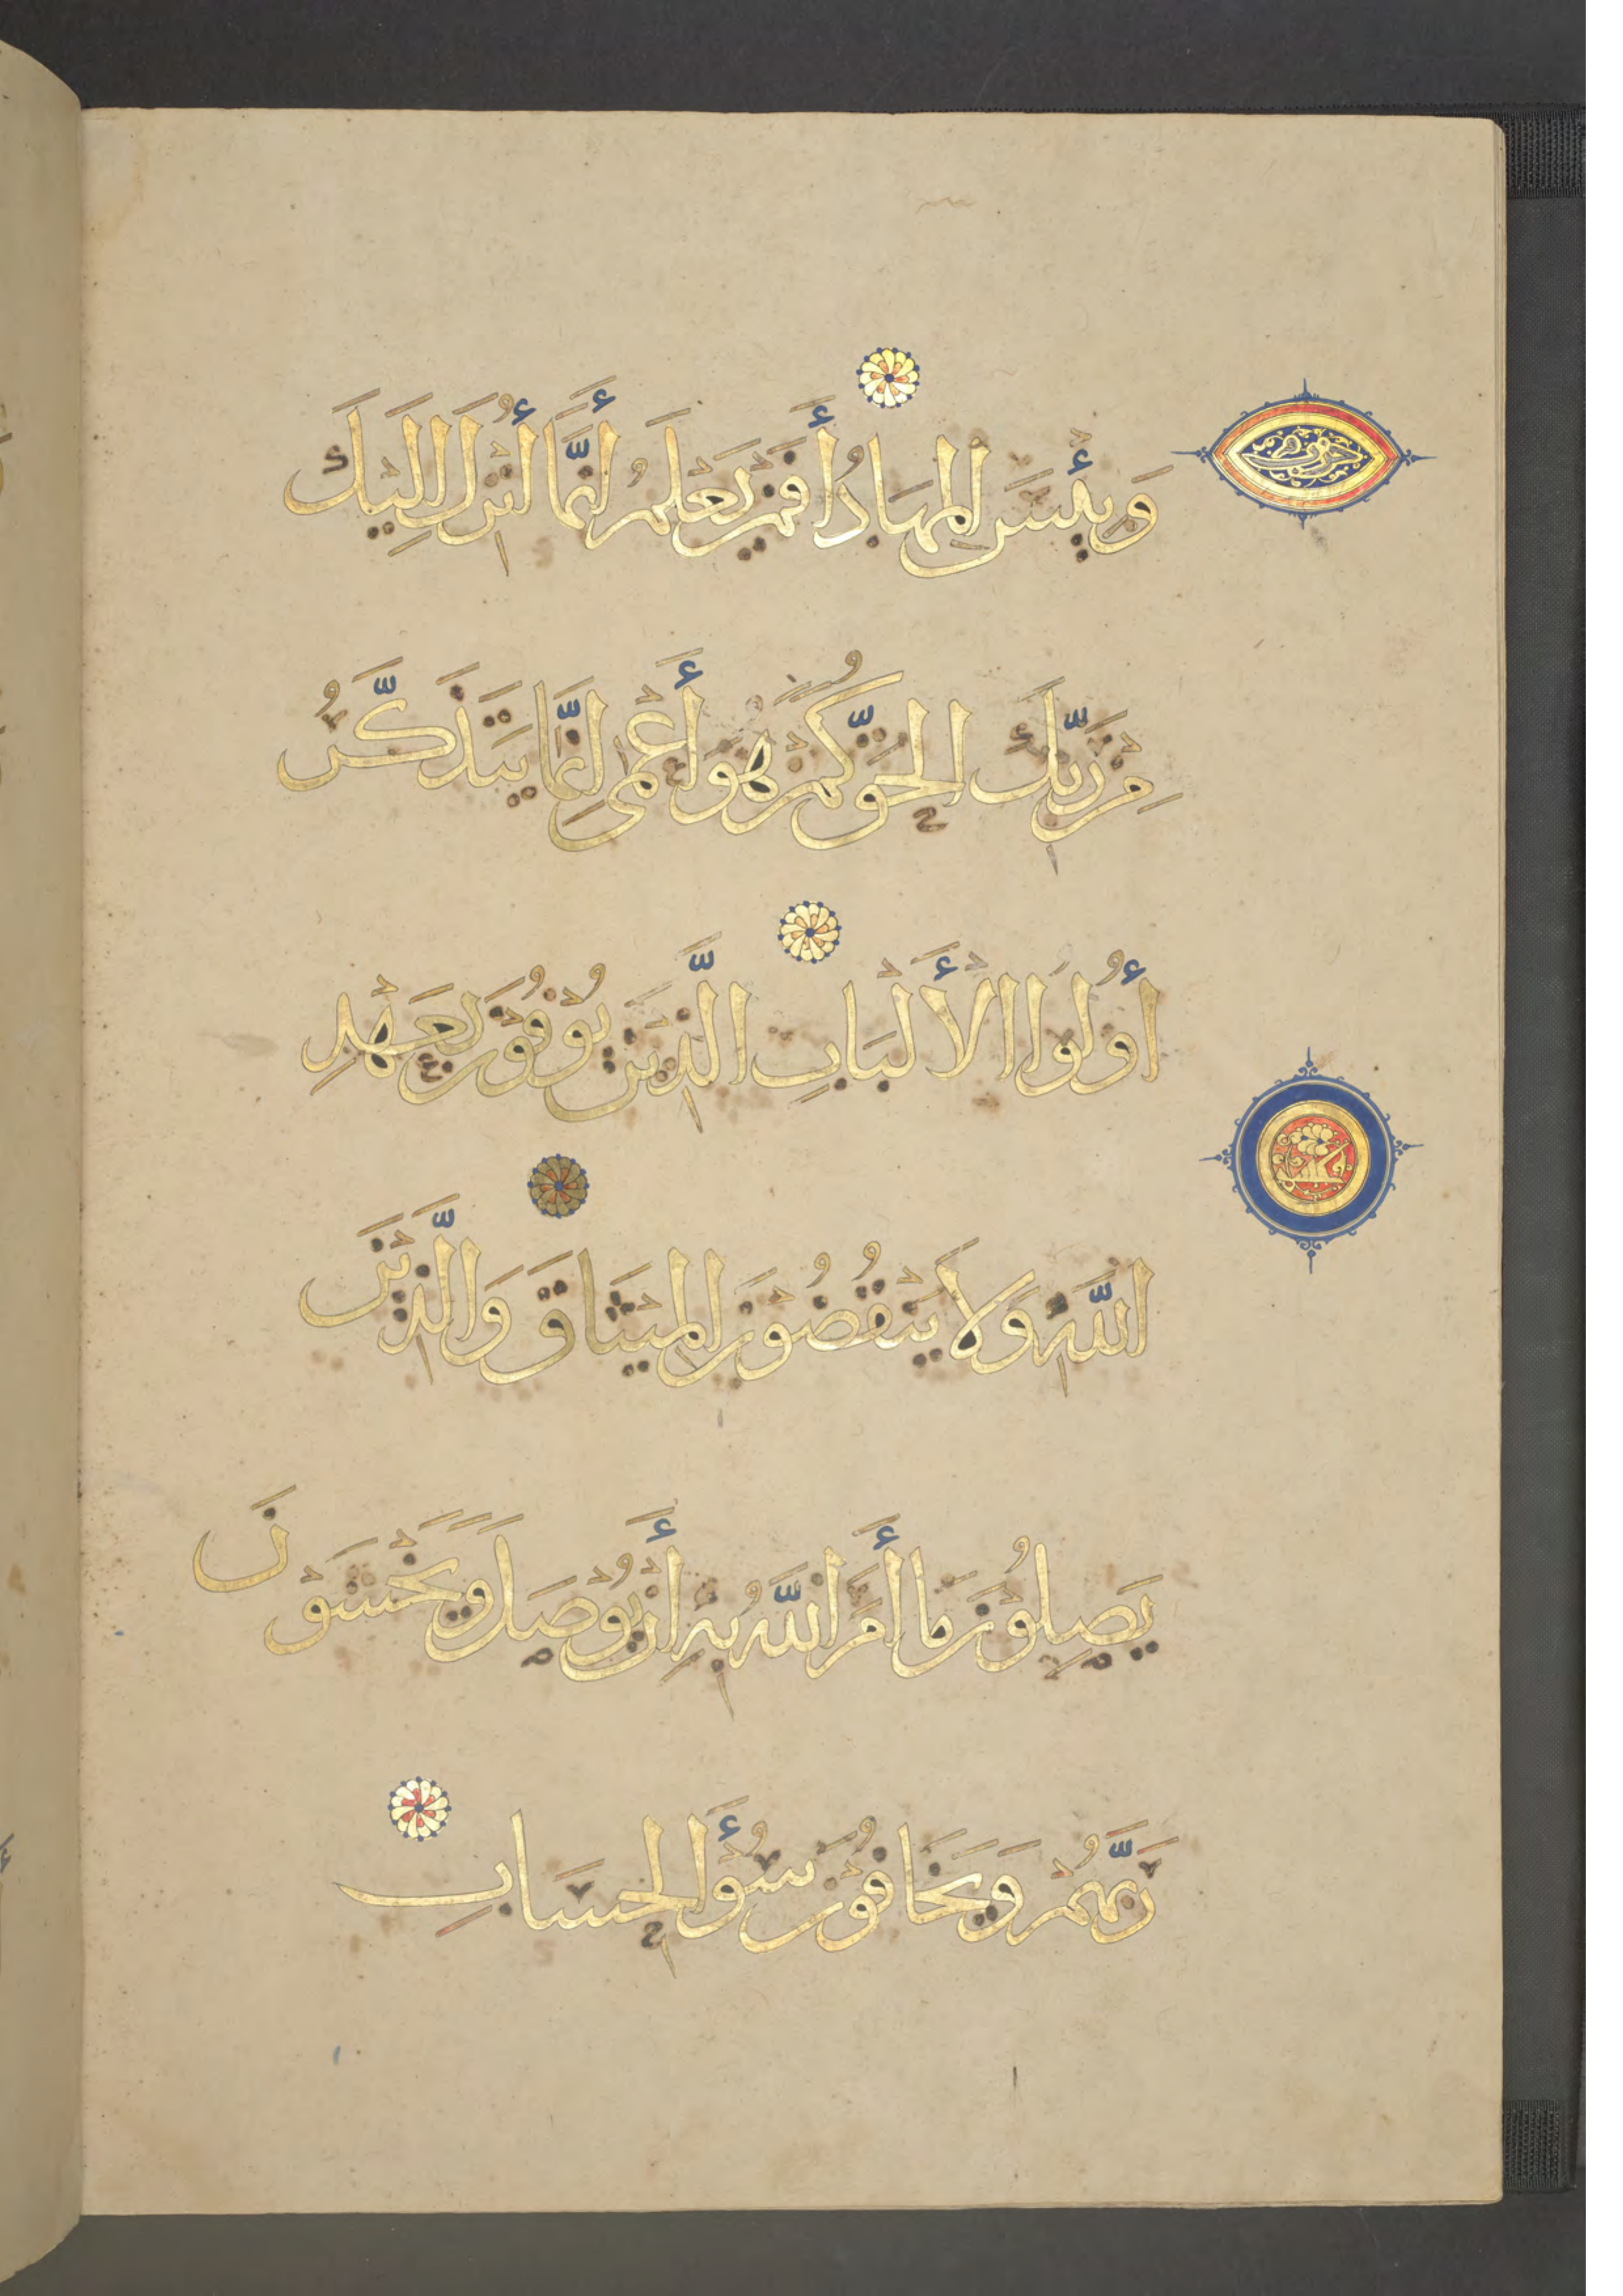 وَبِئْسَ الْمِهَادُ أَفَمَنْ يَعْلَمُ أَنَّمَا أُنْزِلَ إِلَيْكَ
مِنْ رَبِّكَ الْحَقُّ كَمَنْ هُوَ أَعْمَى إِنَّمَا يَتَذَكَّرُ
أُولُوا الْأَلْبَابِ الَّذِينَ يُوفُونَ بِعَهْدِ
اللَّهِ وَلَا يَنْقُضُونَ الْمِيثَاقَ وَالَّذِينَ
يَصِلُونَ مَا أَمَرَ اللَّهُ بِهِ أَنْ يُوصَلَ وَيَخْشَوْنَ
رَبَّهُمْ وَيَخَافُونَ سُوءَ الْحِسَابِ